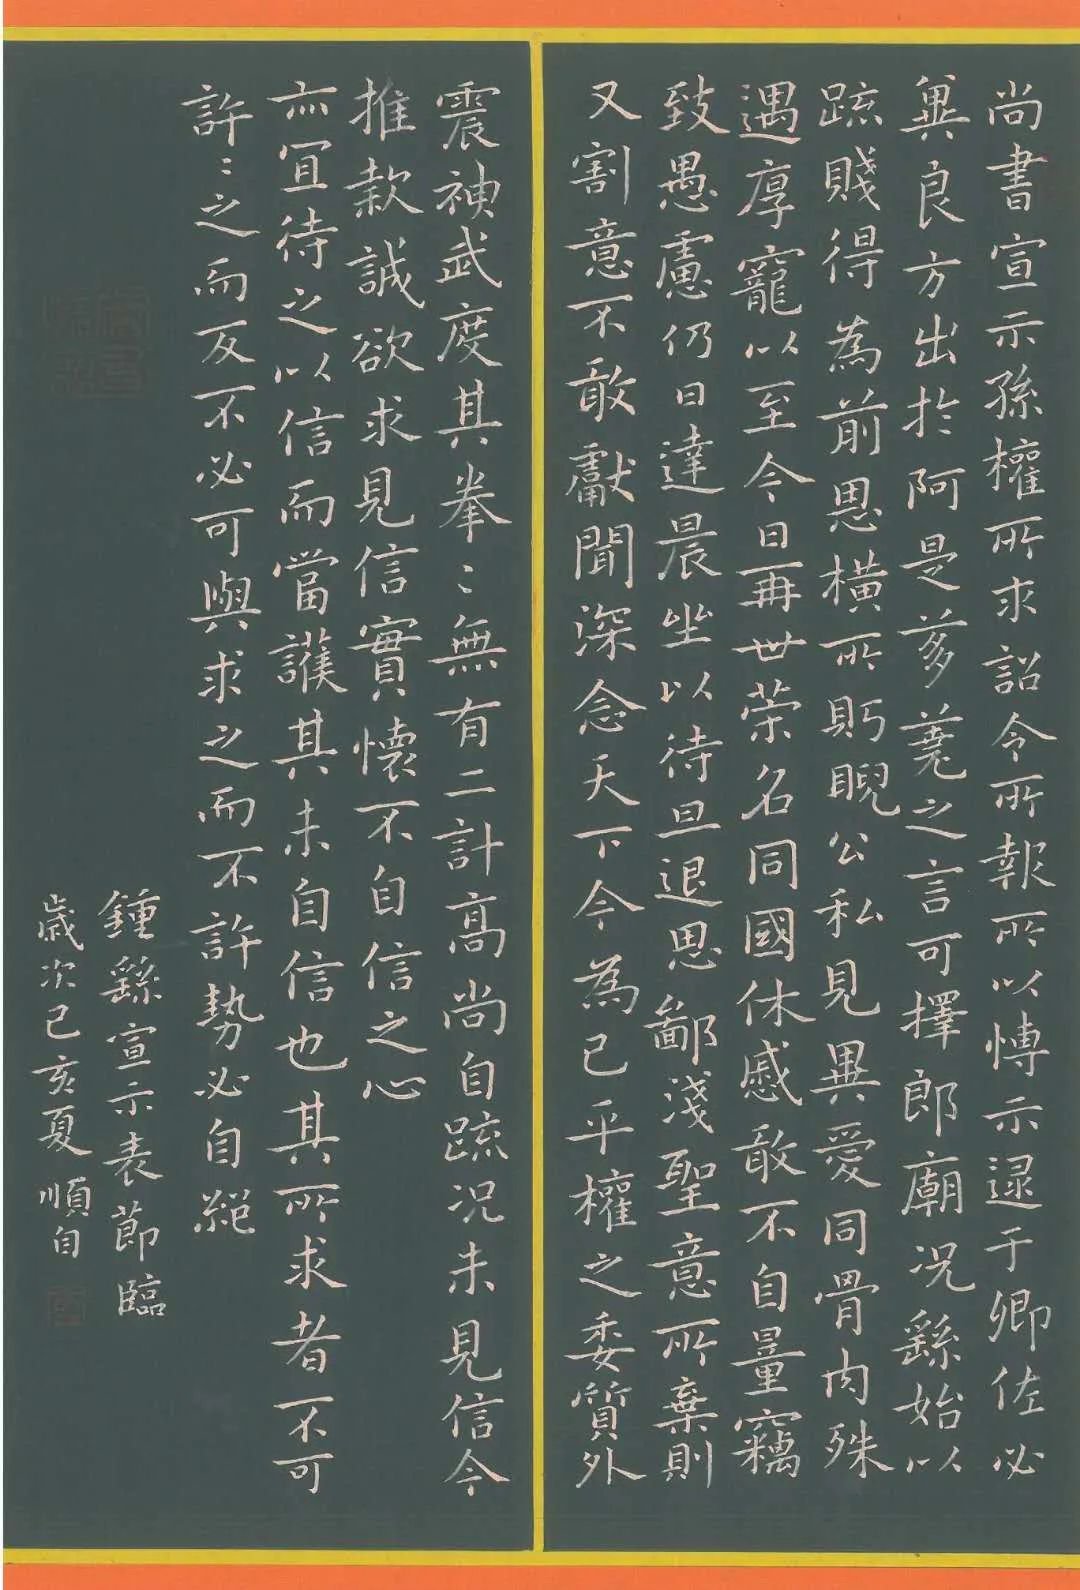 尚書宣示孫權所求詔令所報所以博示逮于卿佐必
兾良方出於阿是芻蕘之言可擇郎廟況繇始以
疏賤得為前恩橫所䀩睨公私見異愛同骨肉殊
遇厚寵以至今日再世荣名同國休慼敢不自量竊
致愚慮仍日達晨坐以待旦退思鄙淺聖意所棄則
又割意不敢獻聞深念天下今為已平權之委質外
震神武度其拳〻無有二計高尚自疏況未見信今
推款誠欲求見信實懷不自信之心
亦宜待之以信而當護其未自信也其所求者不可
許〻之而反不必可與求之而不許勢必自絕
鍾繇宣示表節臨
歲次己亥夏順自